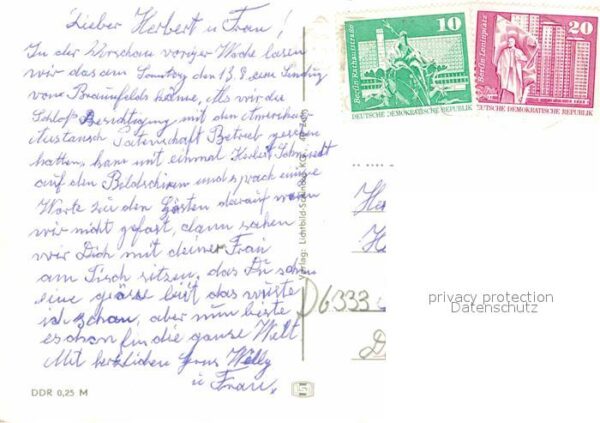 Lieber Herbert u Frau!
In der Vorschau voriger Woche lasen
wir das am Sonntag den 13.8 eine Sendug
von Braunfelds käme, Als wir die
Schloß Besichtigung mit den Amerikan
Austausch Patenschaft Betrieb gesehen
hatten, kam mit einmal Herbert Schmidt
auf den Bildschirm und sprach einige
Worte zu den Gästen darauf waren
wir nicht gefast, dann sahen
wir Dich mit deiner Frau
am Tisch sitzen, das Du schon
eine grösse bist das wuste
ich schon, aber nun biste
es schon für die ganse Welt
Mit herzlichen Grus Willy
u Frau
DDR 0,25 M
Verlag: Lichtbild
10
Berlin-Rathausstraße
DEUTSCHE DEMOKRATISCHE REPUBLIK
20
Berlin-Leninplatz
DEUTSCHE DEMOKRATISCHE REPUBLIK
He
H
D6333
D
privacy protection
Datenschutz